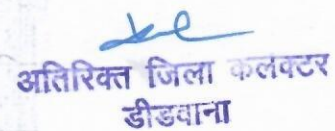 अतिरिक्त जिला कलक्टर
डीडवाना